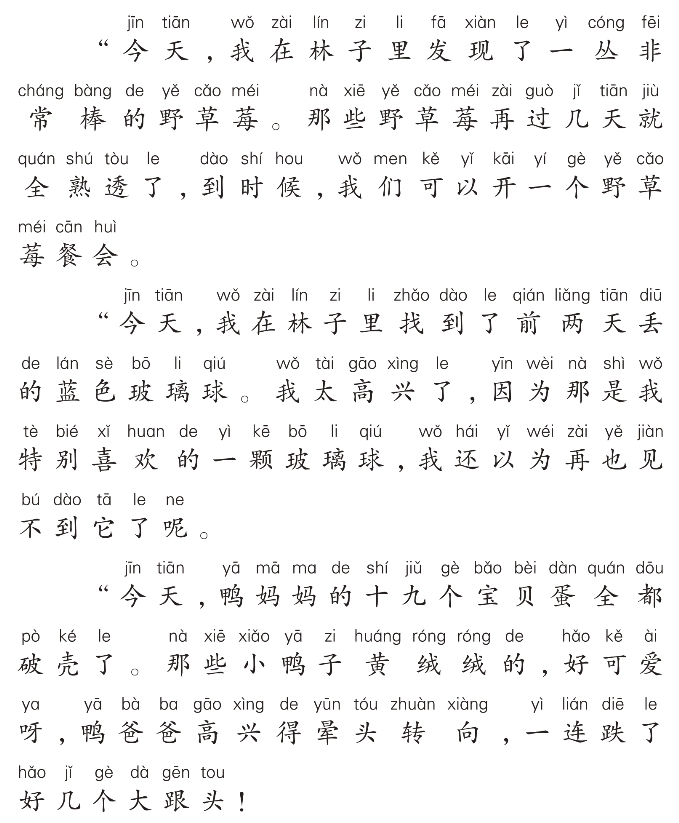 jīn tiān wǒ zài lín zi li fā xiàn le yì cóng fēi
“今天，我在林子里发现了一丛非
cháng bàng de yě cǎo méi nà xiē yě cǎo méi zài guò jǐ tiān jiù
常棒的野草莓。那些野草莓再过几天就
quán shú tòu le dào shí hou wǒ men kě yǐ kāi yí gè yě cǎo
全熟透了，到时候，我们可以开一个野草
méi cān huì
莓餐会。
jīn tiān wǒ zài lín zi li zhǎo dào le qián liǎng tiān diū
“今天，我在林子里找到了前两天丢
de lán sè bō li qiú wǒ tài gāo xìng le yīn wèi nà shì wǒ
的蓝色玻璃球。我太高兴了，因为那是我
tè bié xǐ huan de yì kē bō li qiú wǒ hái yǐ wéi zài yě jiàn
特别喜欢的一颗玻璃球，我还以为再也见
bú dào tā le ne
不到它了呢。
jīn tiān yā mā ma de shí jiǔ gè bǎo bèi dàn quán dōu
“今天，鸭妈妈的十九个宝贝蛋全都
pò ké le nà xiē xiǎo yā zi huáng róng róng de hǎo kě ài
破壳了。那些小鸭子黄绒绒的，好可爱
ya yā bà ba gāo xìng de yūn tóu zhuàn xiàng yì lián diē le
呀，鸭爸爸高兴得晕头转向，一连跌了
hǎo jǐ gè dà gēn tou
好几个大跟头！